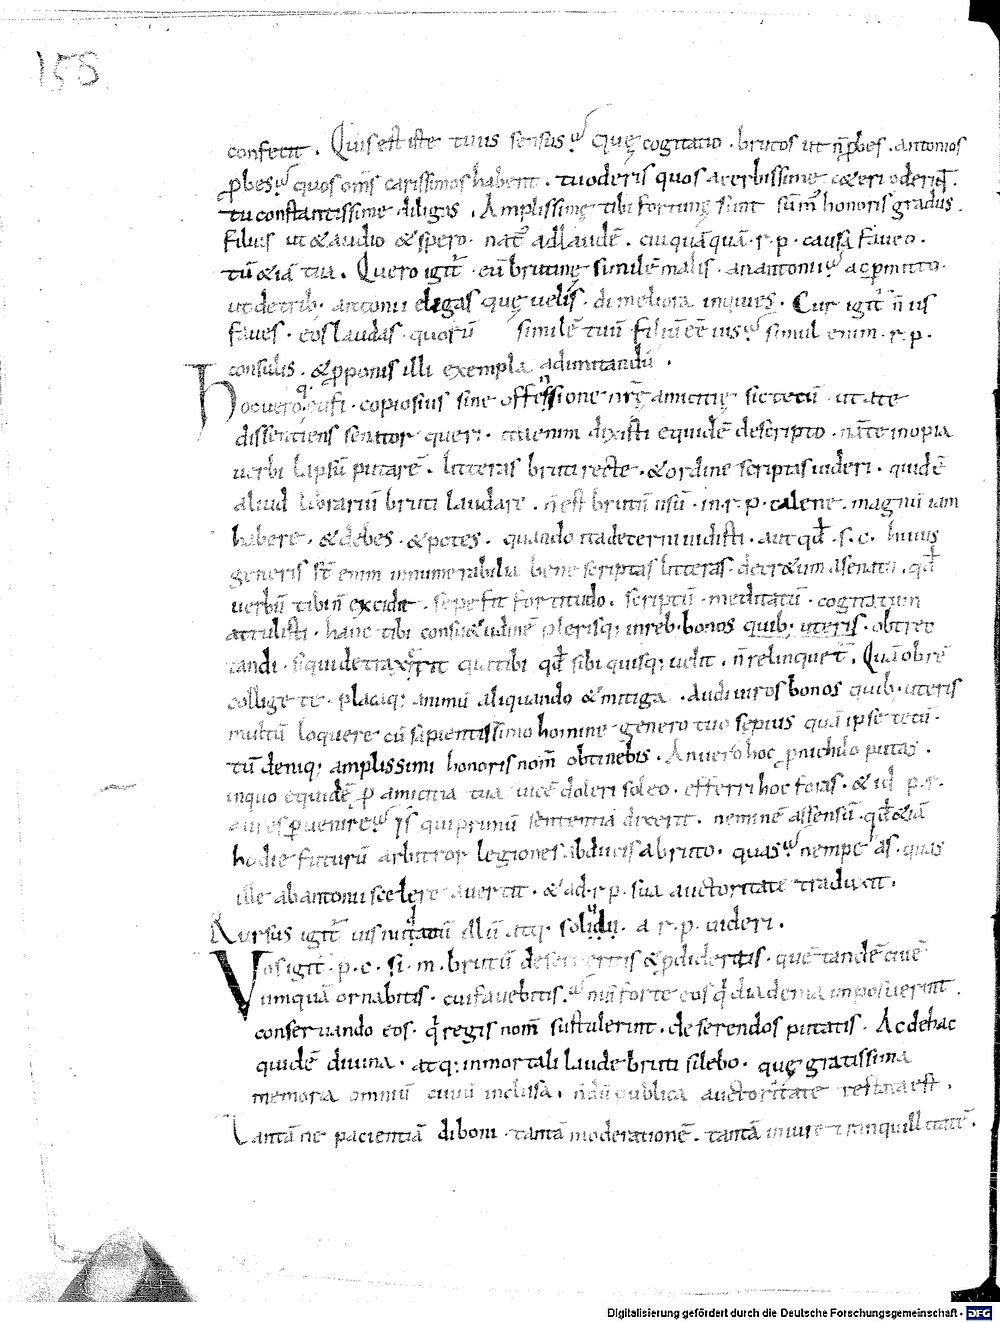 158
confecit. Quis est iste tuus sensus? quę cogitatio. brutos ut ñ ꝓbes. antonios
ꝓbes? quos om̅s carissimos habent. tu oderis quos acerbissime cęteri oder̅
tu constantissime diligas. Amplissimę tibi fortunę sunt sum̅i honoris gradus.
filius ut & audio & spero. nat' ad laudē. cui quā quā. r. p. causa faueo.
tū & iā tua. Quero igit̅ eū brutinę similē malis. an antonii? ac ꝑmitto.
ut de trib; antonii eligas quę uelis. di meliora inquies. Cur igit̅ ñ iis
faues. eos laudas. quorū similē tuū filiū eē uis? simul enim. r. p.
consulis. & ꝓponis illi exempla ad imitandū.
Hoc uero q. cufi. copiosius sine offensione nr̅ę amicitię sic tecū. ut a te
dissentiens senator queri. ita enim dixisti equidē de scripto. nā te inopia
uerbi lapsū putarē. litteras bruti recte. & ordine scriptas uideri. quidē
aliud librariū bruti laudare. ñ est brutū usū. in. r. p. calene. magnū iam
habere. & debes. & potes. quando ita decerni uidisti. aut qd̅. s. c. huius
generis st̅ enim innumerabilia bene scriptas litteras. decr&um a senatu. qd̅
uerbū tibi ñ excidit. sepe fit fortuito. scriptū. meditatū. cogitatum
attulisti. hanc tibi consu&udinē plerisq; in reb; bonos quib; uteris. obtrec
tandi. siquis detraxerit qui tibi qd̅ sibi quisq; uelit. ñ relinquet̅. Quā obrē
collige te. placaq; animū aliquando & mitiga. Audi uiros bonos quib; uteris
multū loquere cū sapientissimo homine genero tuo sepius quā ipse tecū.
tū deniq; amplissimi honoris nom̅ obtinebis. An uero hoc ꝓ nichilo putas.
in quo equidē ꝓ amicitia tua uicē dolere soleo. efferri hoc foras. & id p. r.
aures ꝑuenire? is qui primū sententiā dixerit. neminē assensū. qd̅ & iā
hodie futurū arbitror legiones abducis a bruto. quas? nempe as. quas
ille ab antonii scelere auertit. & ad. r. p. sua auctoritate traduxit.
Rursus igit̅ uis nudatū illū atq; solū. a r. p. uideri.
Vos igit̅. p. c. si. m. brutū deserueritis & ꝓdideritis. quē tandē ciuē
umquā ornabitis. cui fauebitis? nisi forte eos q̅ diadema imposuerint.
conseruando eos. q̅ regis nom̅ sustulerint. deserendos putatis. Ac de hac
quidē diuina. atq; inmortali laude bruti silebo. quę gratissima
memoria omniū ciuiū inclusa. nd̅ū publica auctoritate testata est.
Tantā ne pacientiā di boni. tantā moderationē. tantā in iure tranquillitatē.
Digitalisierung gefördert durch die Deutsche Forschungsgemeinschaft - DFG